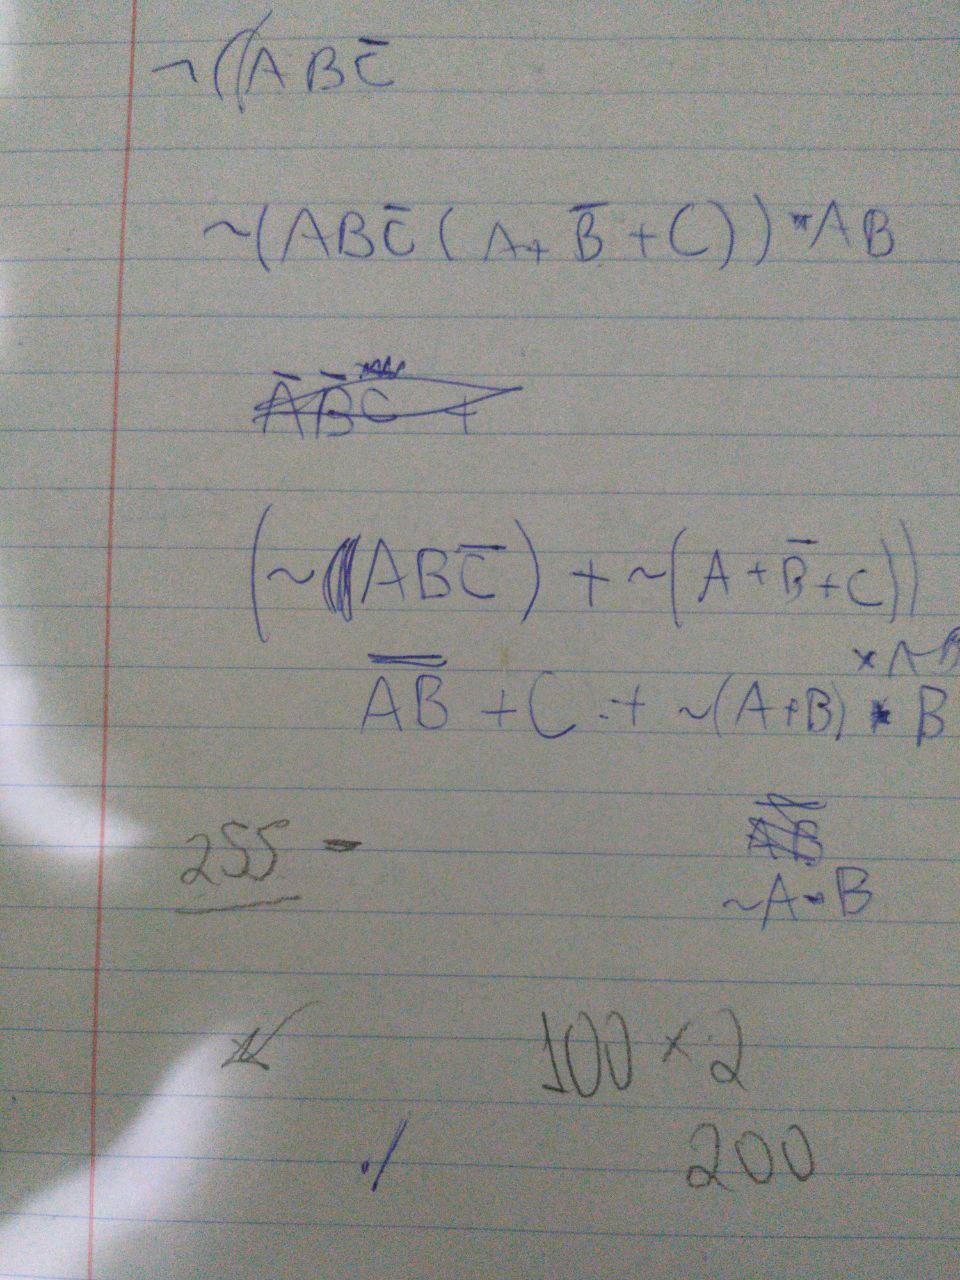 ¬((ABC̅
~(ABC̅(A+B̅+C))*AB
A̅B̅C +
(~(ABC̅)+~(A+B̅+C))
A̅B̅+C+~(A+B)*B
255 -
~A-B
100×2
200